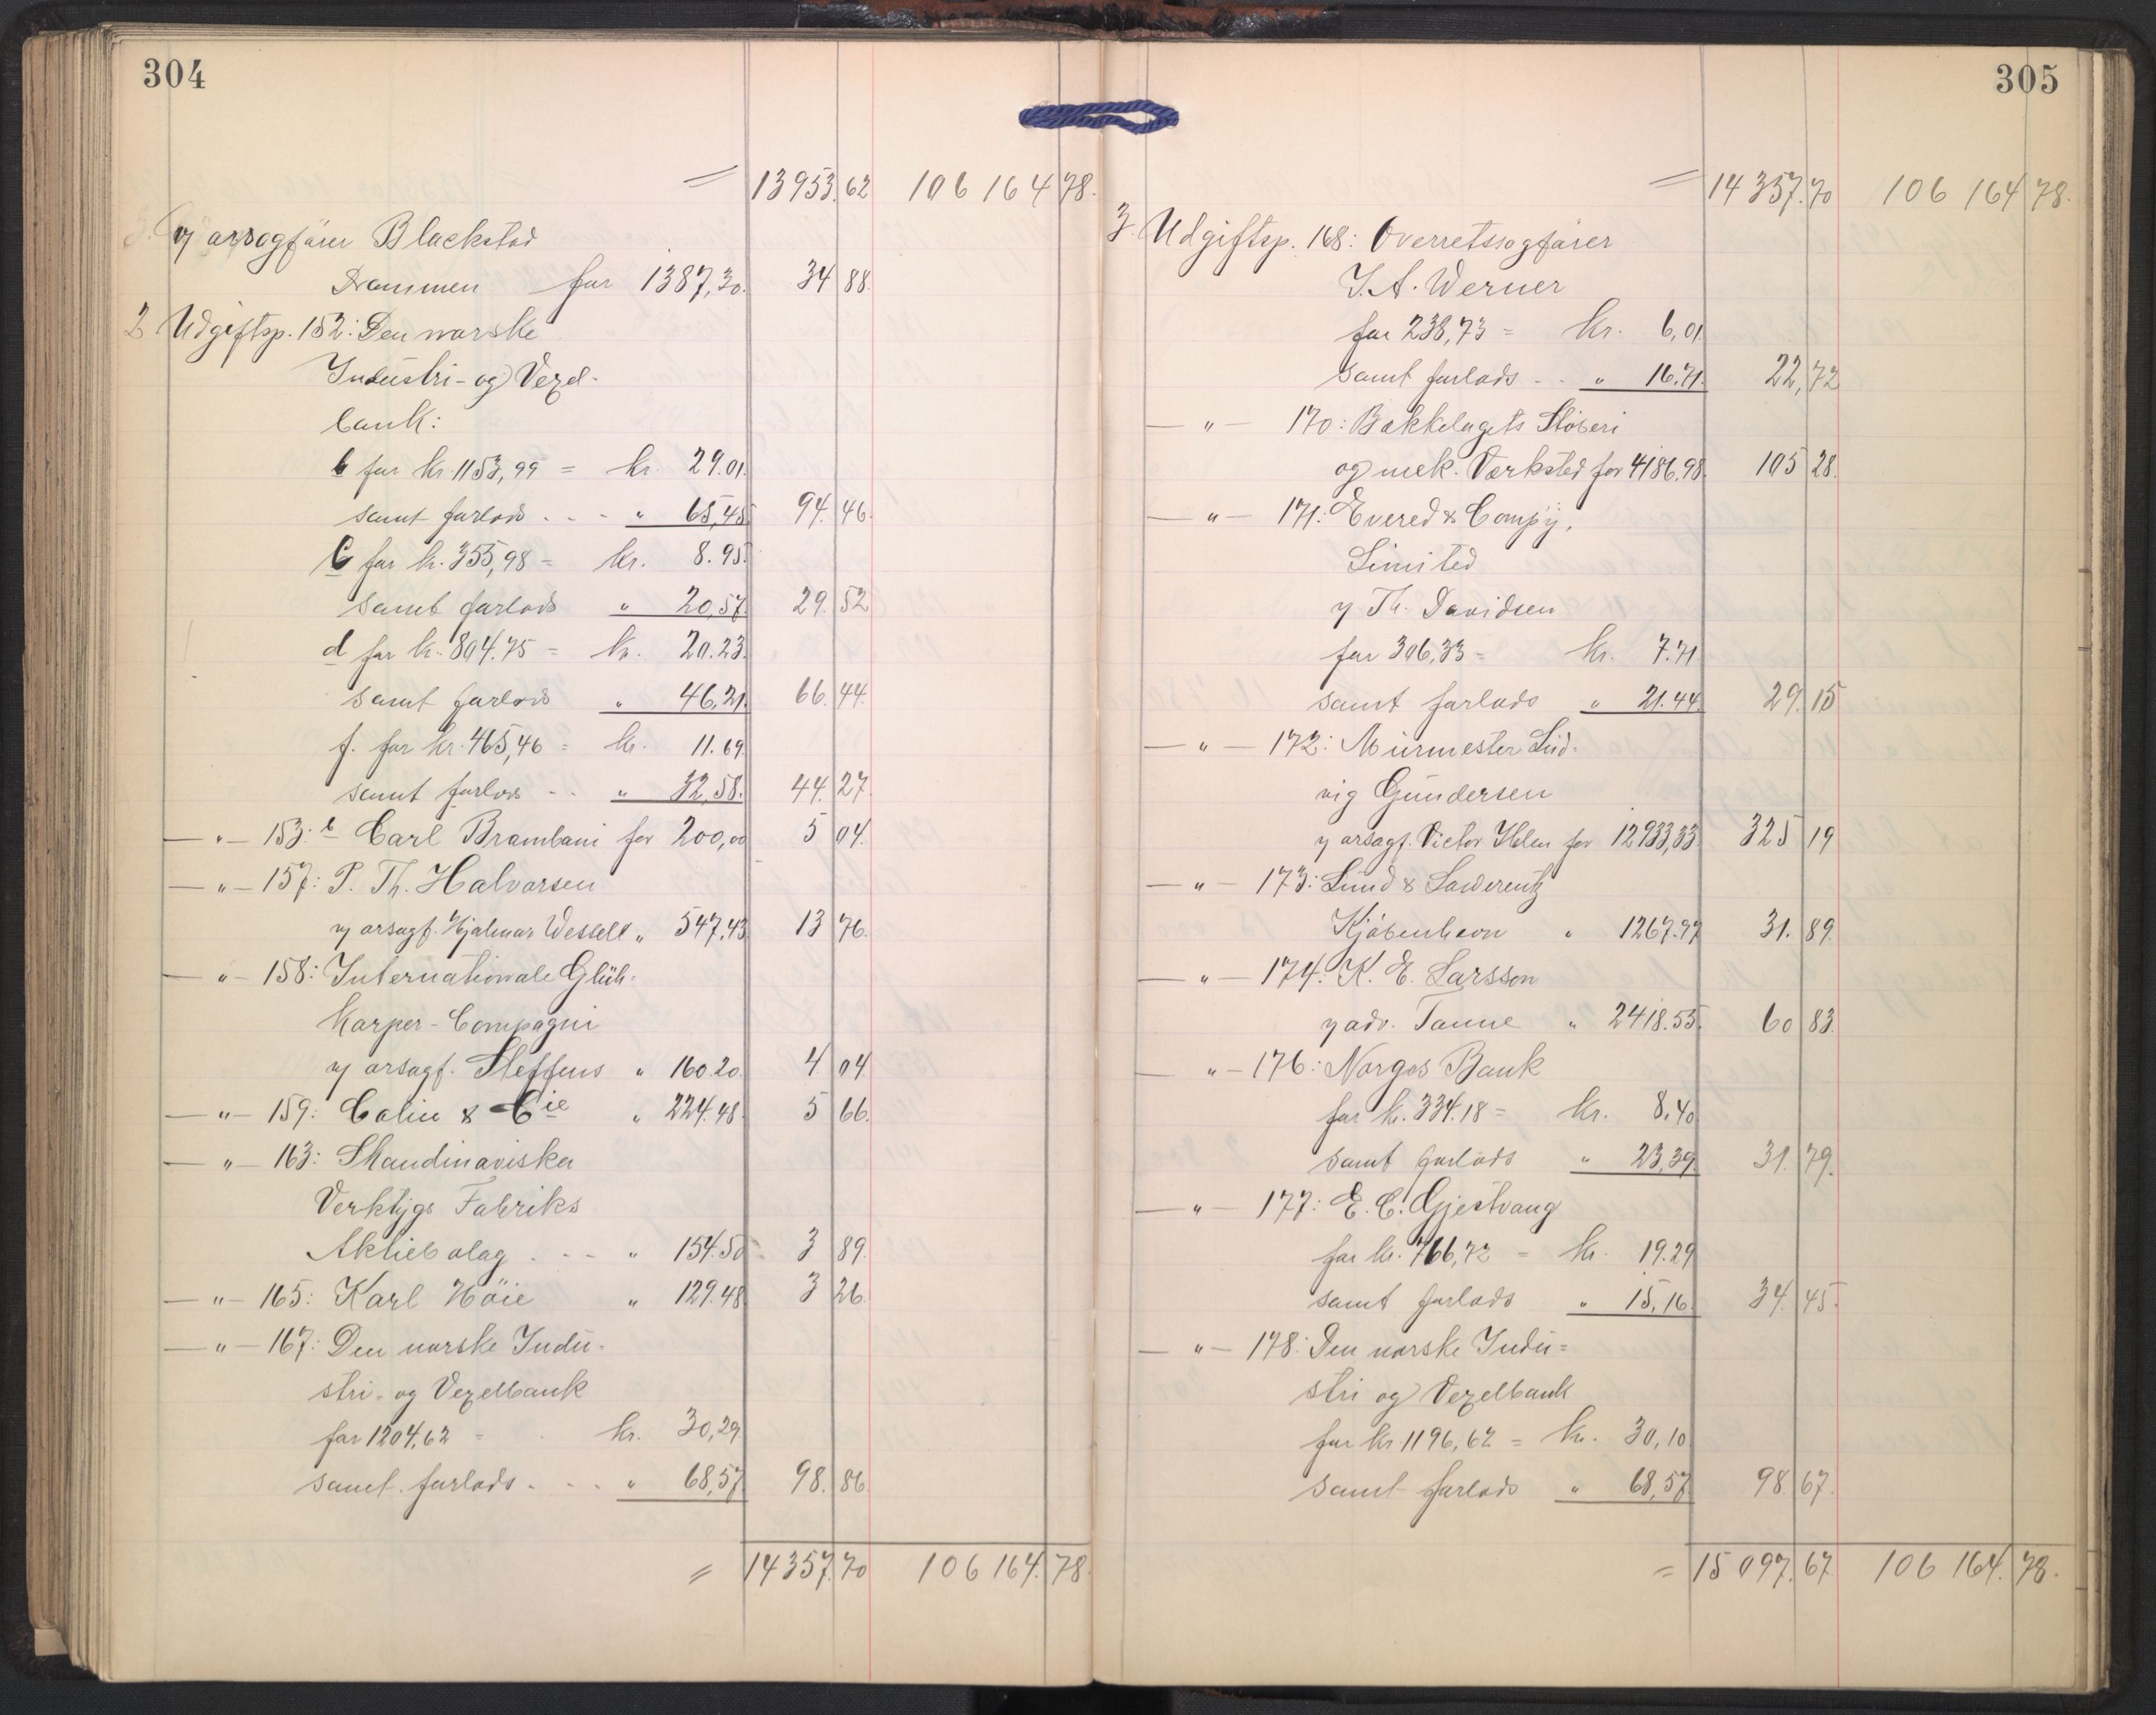 304
= 13953.62 106 164 78.
3. v/ orsagfører Blackstad
Drammen for 1387,30. 34 88.
3 Udgiftsp. 152: Den norske
Industri- og Vexel-
bank:
b for kr. 1153,99 = kr. 29.01.
samt forlods . . - " 65,45. 94. 46.
c for kr. 355,98 = kr. 8.95.
samt forlods " 20,57. 29. 52
d for kr. 804.75 = kr. 20.23.
samt forlods " 46,21. 66. 44.
f. for kr. 465,46 = kr. 11.69.
samt forlods - - " 32,58. 44. 27.
— " — 153: b Carl Brambani for 200,00 5 04.
— " — 157: P. Th. Halvorsen
v/ orsagf. Hjalmar Wessell " 547,43. 13 76.
— " — 158: Internationale Glüh-
korper-Compagni
v/ orsagf. Steffens " 160.20. 4 04.
— " — 159: Colin & Cie " 224.48. 5 66.
— " — 163: Skandinaviska
Verktygs Fabriks
Aktiebolag . - - " 154.50 3 89.
— " — 165: Karl Höie " 129.48 3 26.
— " — 167: Den norske Indu-
stri- og Vexelbank
for 1204,62 = kr. 30,29.
samt forlods . - . " 68,57. 98. 86.
= 14357.70 106 164. 78.
305
= 14357.70 106 164 78.
3. Udgiftsp. 168: Overretssagfører
J. A. Werner
for 238,73 = kr. 6,01.
samt forlods - . " 16.71. 22, 72
— " — 170: Bækkelagets Støberi
og mek. Værksted for 4186.98. 105 28.
— " — 171: Evered & Compy,
Limited
v/ Th. Davidsen
for 306,33 = kr. 7.71.
samt forlods " 21.44. 29. 15
— " — 172: Murmester Lud-
vig Gundersen
v/ orsagf. Victor Holen for 12933,33. 325 19
— " — 173: Lund & Lawerentz
Kjøbenhavn " 1267.97 31. 89.
— " — 174: K. E. Larsson
v/ adv. Tanne " 2418.55. 60 83.
— " — 176: Norges Bank
for kr. 334.18 = kr. 8,40
samt forlods " 23,39. 31. 79.
— " — 177: E. C. Gjestvang
for kr. 766,72 = kr. 19.29
samt forlods " 15,16. 34. 45.
— " — 178: Den norske Indu=
stri og Vexelbank
for kr 1196,62 = kr. 30,10
samt forlods " 68,57. 98. 67.
= 15097.67. 106 164. 78.